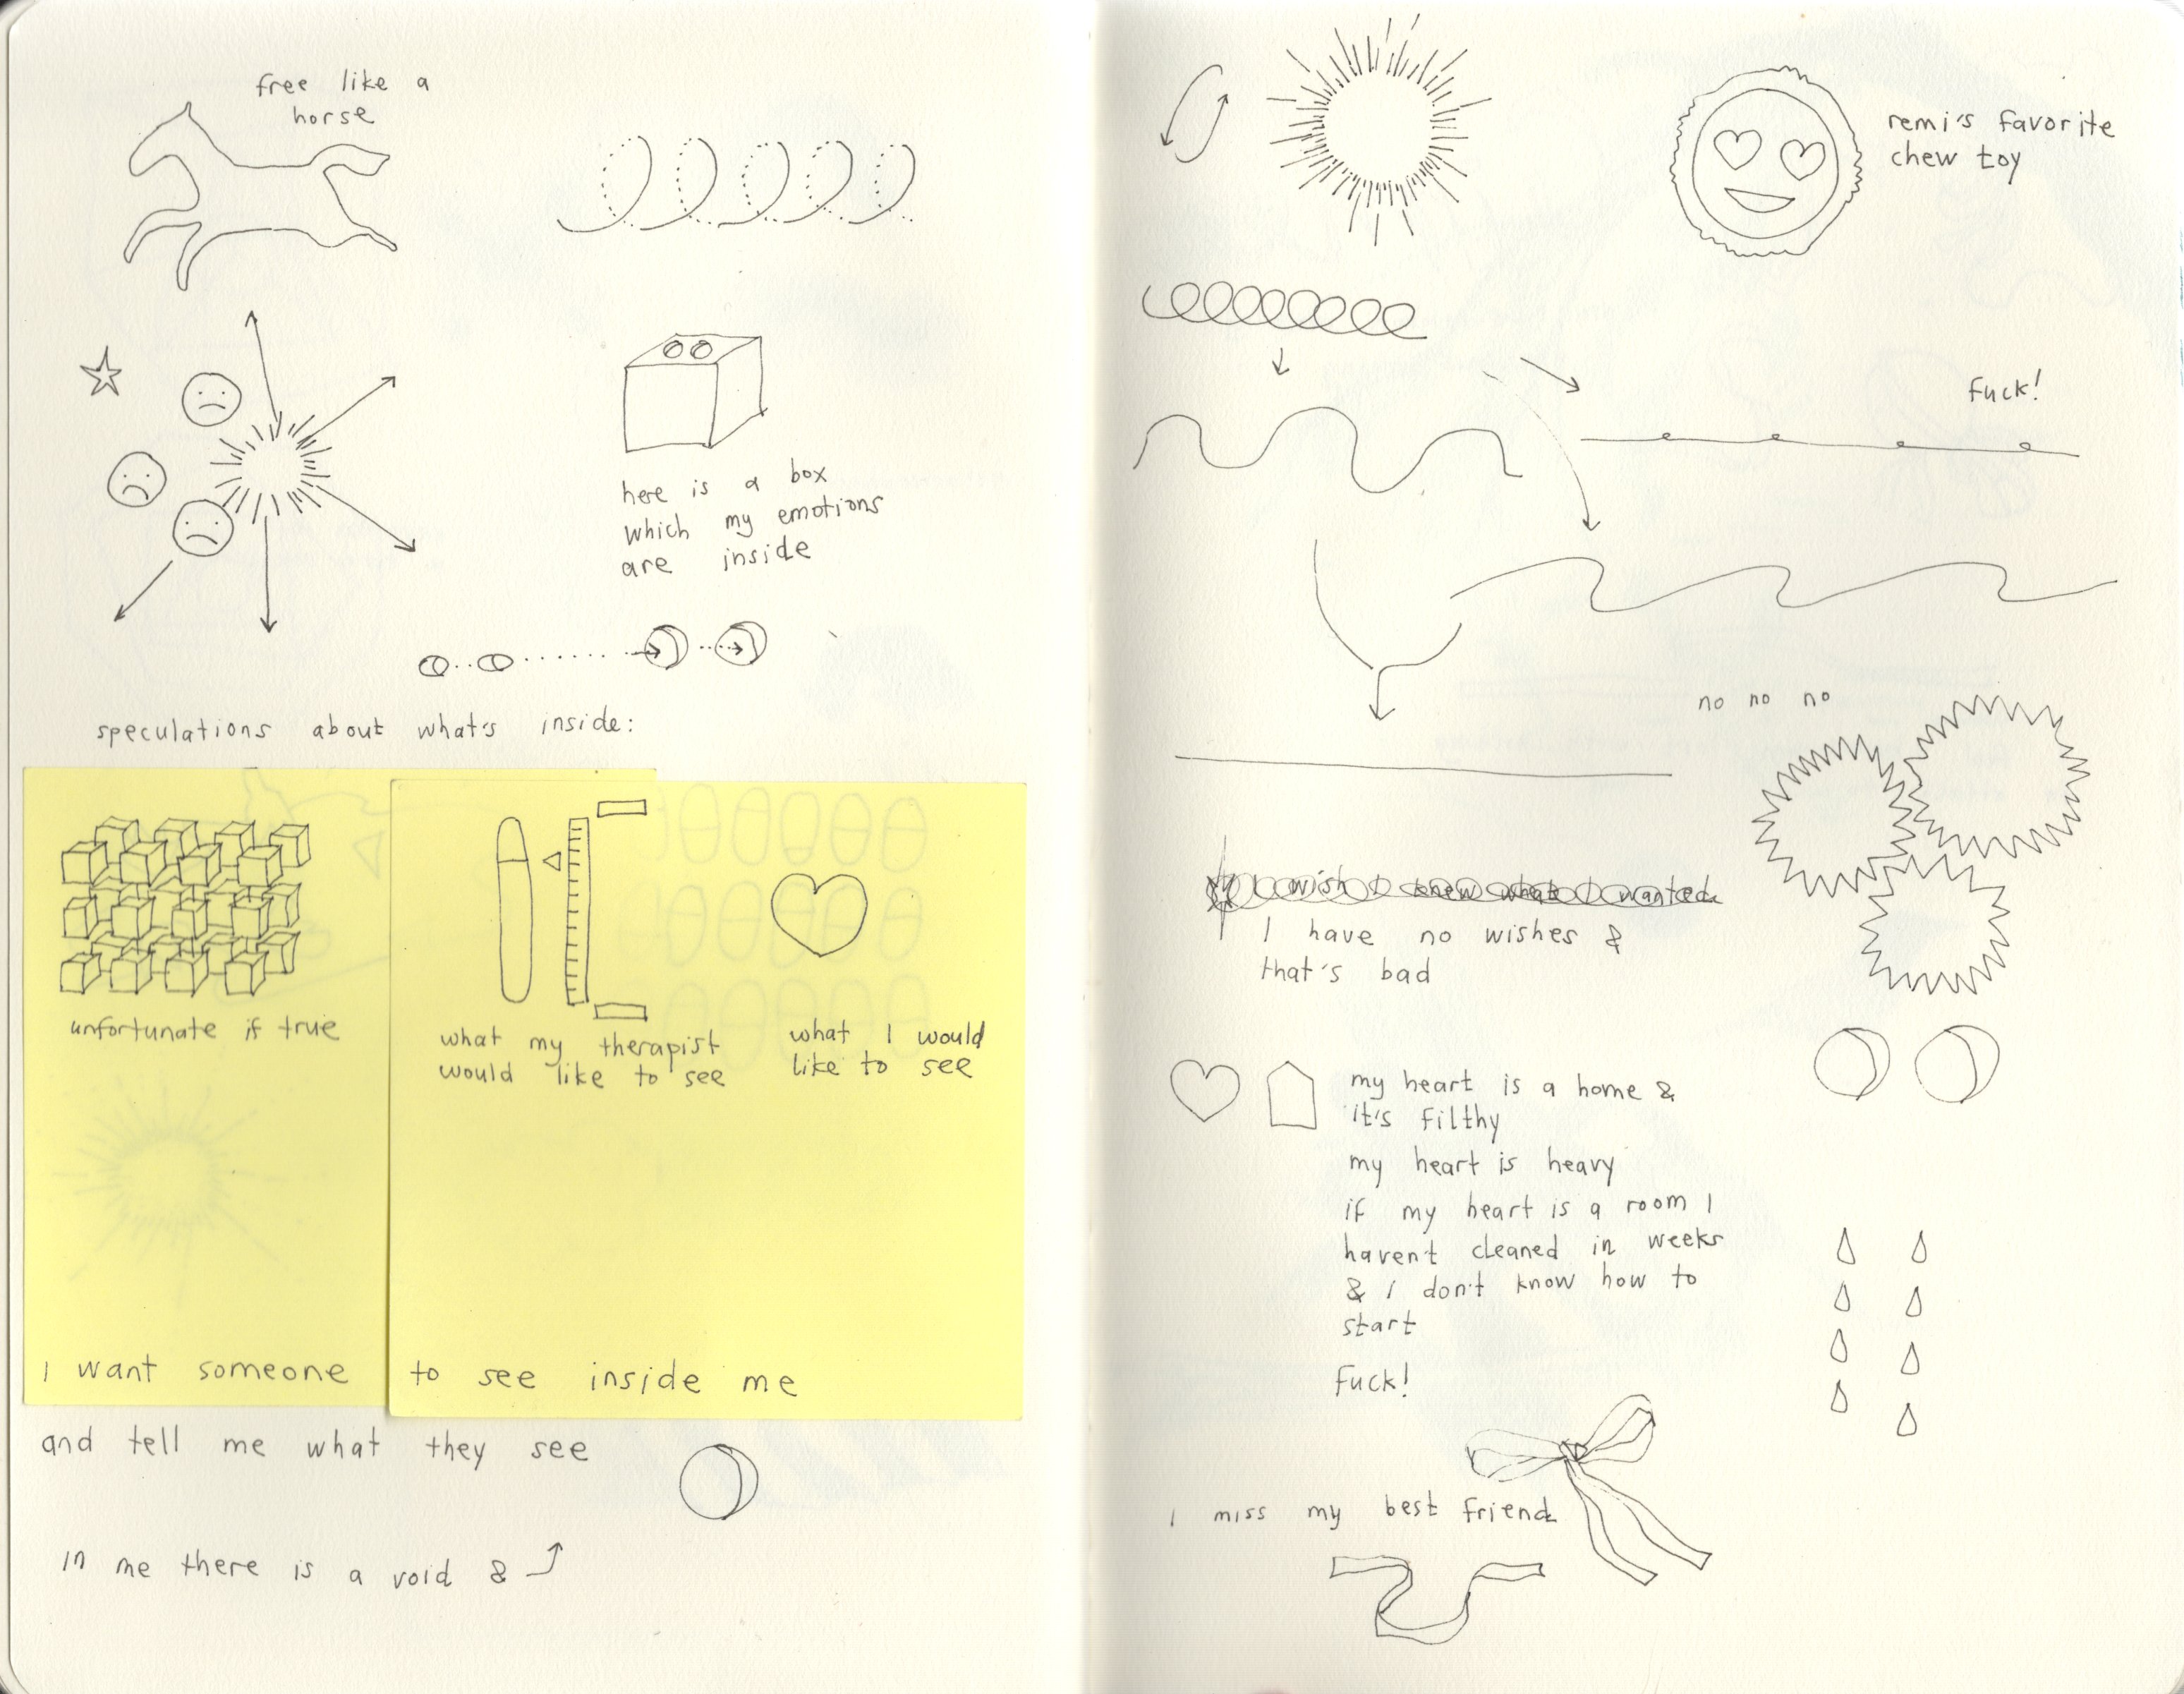 free like a
horse
here is a box
which my emotions
are inside
speculations about what's inside:
unfortunate if true
what my therapist
would like to see
what I would
like to see
I want someone to see inside me
and tell me what they see
in me there is a void &
remi's favorite
chew toy
fuck!
no no no
I wish I knew what I wanted
I have no wishes &
that's bad
my heart is a home &
it's filthy
my heart is heavy
if my heart is a room I
haven't cleaned in weeks
& I don't know how to
start
fuck!
I miss my best friend